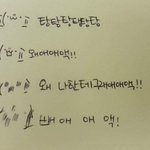 탕탕탕탕탕
왜애애액!!
왜 나한테 그래애애액!!
빼애애액!